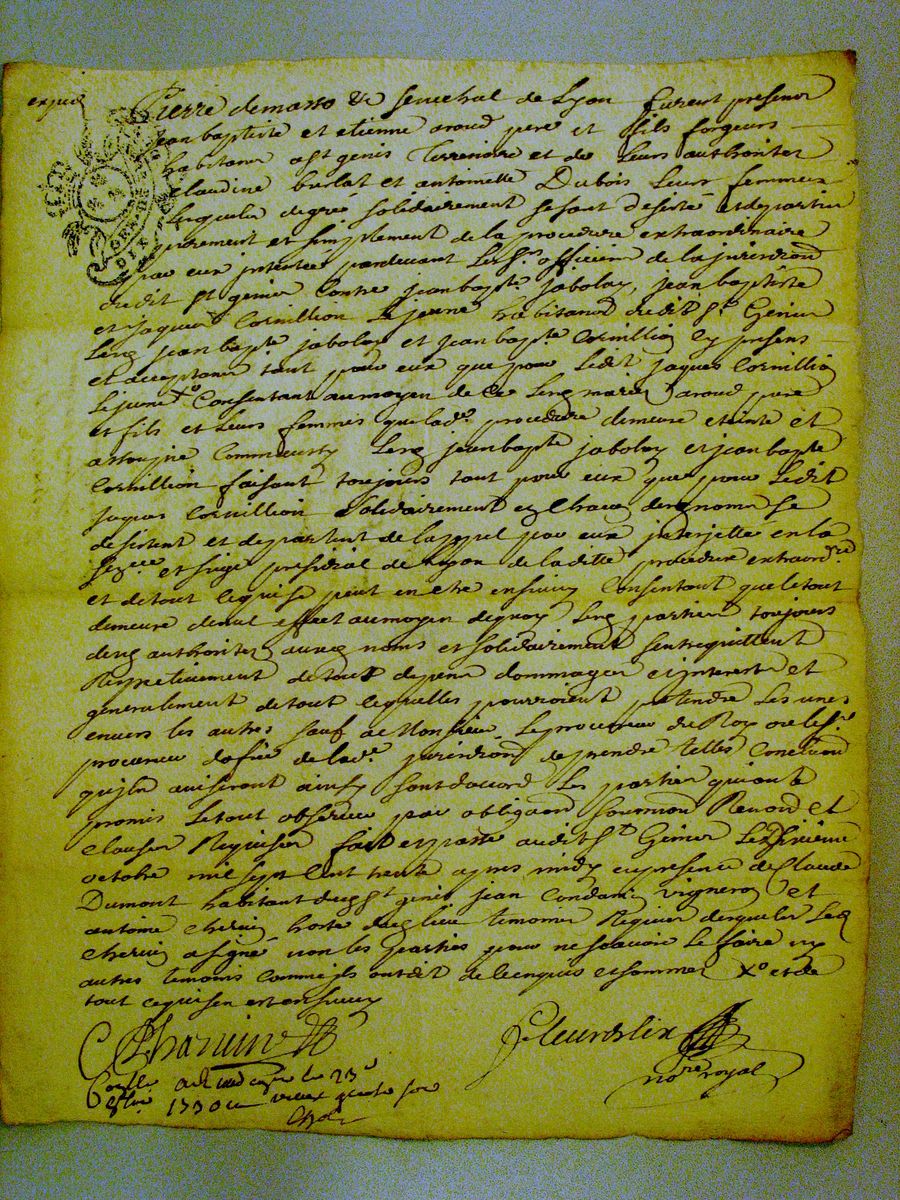 expedié
Pierre demasso &c senechal de Lyon furent presens
jean baptiste et etienne aroud pere et fils forgeurs
habitans a St genis Terrenoire et de leurs authorité
claudine burlat et antoinette Dubois leurs femmes
lesquels degré solidairement se sont desisté et departis
purement et simplement de la procedure extraordinaire
par eux intentée pardevant les Srs officiers de la jurisdiond
dudit St genis contre jean bapte jabolay, jean baptiste
et jaques Cornillion le jeune habitans dudit St Genis
Lesq jean bapte jabolay et jean bapte Cornillion cy presens
et acceptans tant pour eux que pour Ledit jaques Cornillion
Lejeune Xo Consentant au moyen de ce Lesq aroud pere
et fils et leurs femmes que lade procedure demeure eteinte et
assoupie comme aussy Lesq jean bapte jabolay et jean bapte
Cornillion faisant toujours tant pour eux que pour Ledit
jaques Cornillion Solidairement es noms se
desistent et departent de lappel par eux interjetté en la
et siege presidial de Lyon de laditte procedure extraordre
et de tout ce qui se peut en etre ensuivy Consentant que le tout
demeure de nul effect au moyen dequoy Lesq parties toujours
authorité noms et solidairement sentrequittent
Respectivement de tous depens dommages et interests et
generalement de tout ce quelles pourroient pretendre Les unes
envers les autres sauf a Monsieur Le procureur du Roy ou le Sr
procureur doffice de lade jurisdiond de prendre telles Conclusions
quils aviseront ainsy sont daccord Les parties qui ont
promis Le tout observer par obligaon Soumion Renond et
clauses Requises fait et passé audit St Genis Le Dixieme
octobre mil sept Cent trente apres midy en presence de Claude
Dumont habitant dud St genis jean Condamin vigneron et
antoine Chervin hoste dud lieu temoins Requis desquels Led
Chervin a signé non les parties pour ne scavoir le faire ny
autres temoins comme ils ont dit de ce enquis et sommés Xo et de
tout ce qui sen est ensuivy
Fleurdelix
nore royal
Conllé
le 23e
8bre 1730